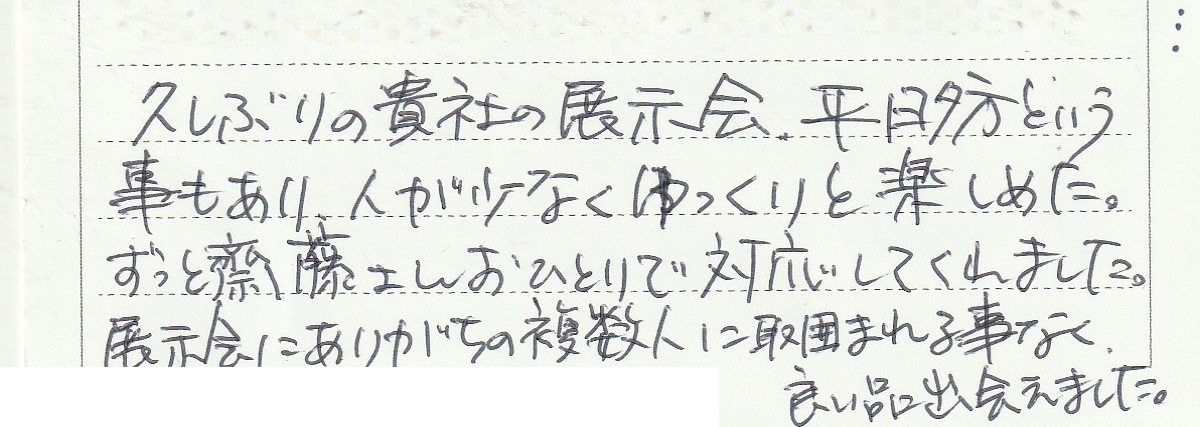 久しぶりの貴社の展示会、平日夕方という
事もあり、人が少なくゆっくりと楽しめた。
ずっと齋藤さんおひとりで対応してくれました。
展示会にありがちの複数人に取囲まれる事なく、
良い品に出会えました。